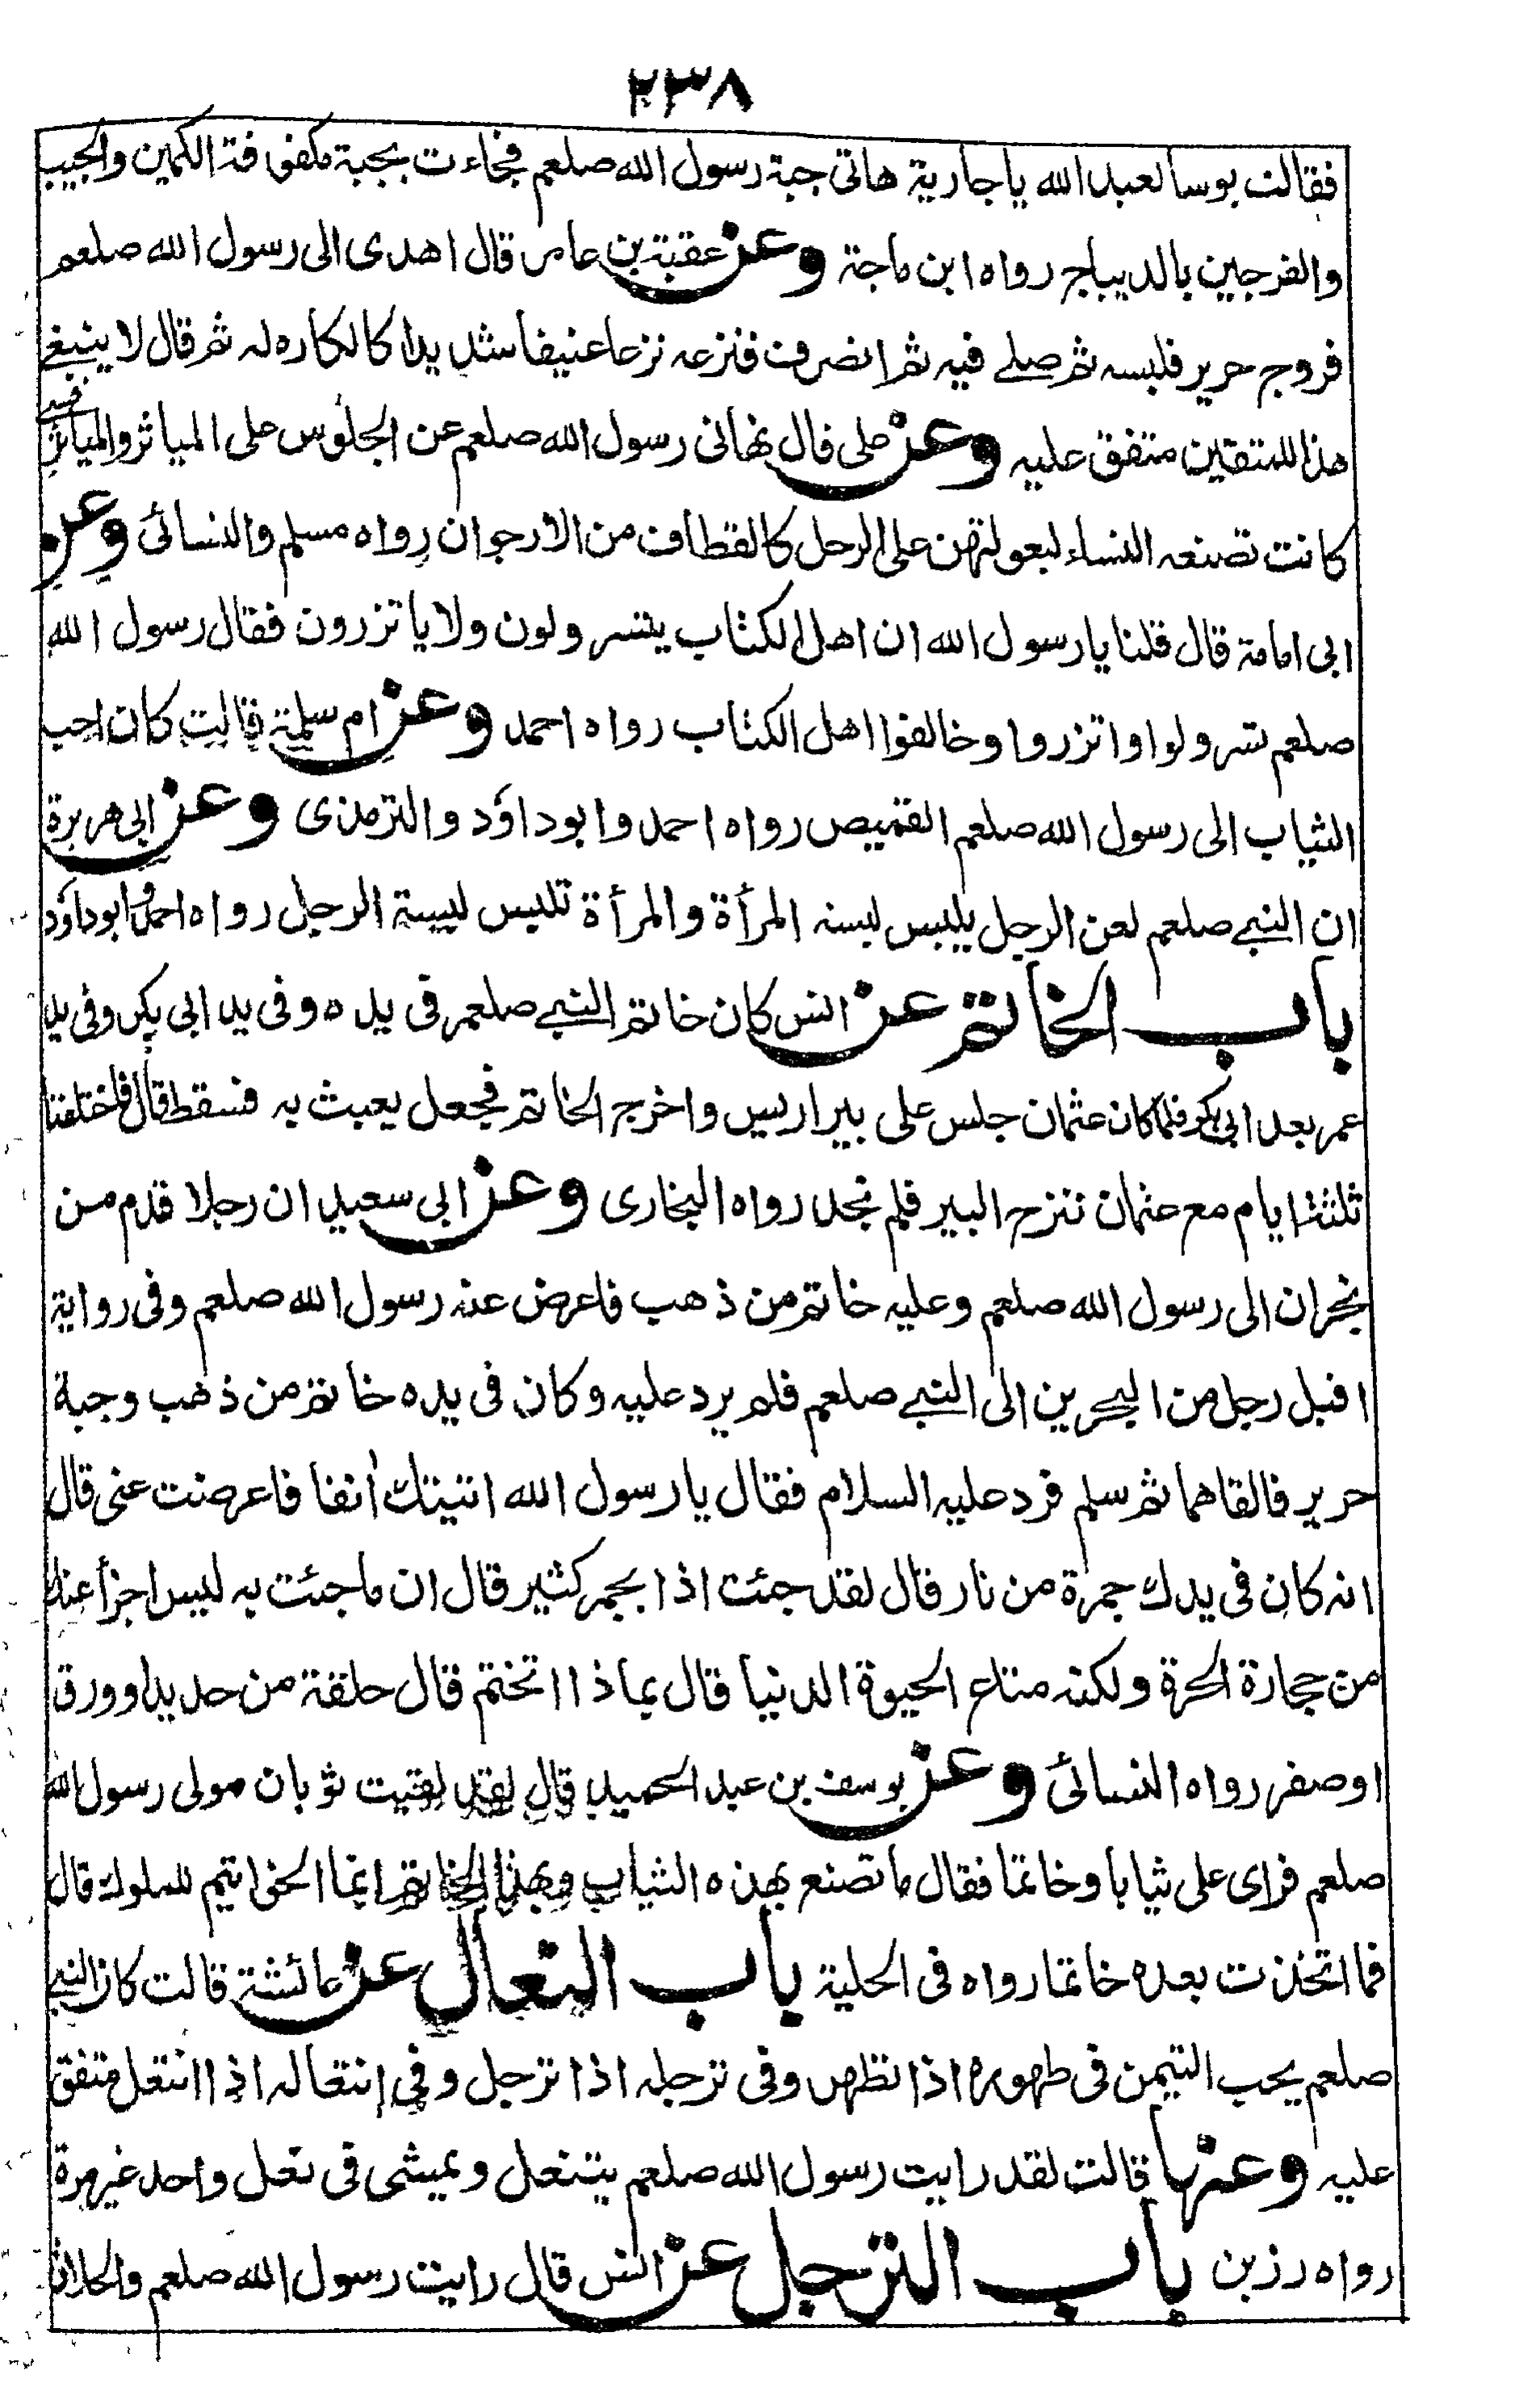 ٢٣٨
فقالت بوسا لعبد الله يا جارية هاتى جبة رسول الله صلعم فجاءت بجبة مكفوفة الكمين والجيب
والفرجين بالديباج رواه ابن ماجة وعن عقبة بن عامر قال اهدى الى رسول الله صلعم
فروج حرير فلبسه ثم صلے فيه ثم انصرف فنزعه نزعا عنيفا شديدا كالكاره له ثم قال لا ينبغے
هذا للمتقين متفق عليه وعن على قال نهانى رسول الله صلعم عن الجلوس على المياثر والمياثر قسے
كانت تصنعه النساء لبعولتهن على الرحل كالقطائف من الارجوان رواه مسلم والنسائى وعن
ابى امامة قال قلنا يا رسول الله ان اهل الكتاب يتسرولون ولا ياتزرون فقال رسول الله
صلعم تسرولوا واتزروا وخالفوا اهل الكتاب رواه احمد وعن ام سلمة قالت كان احب
الثياب الى رسول الله صلعم القميص رواه احمد وابو داؤد والترمذى وعن ابى هريرة
ان النبے صلعم لعن الرجل يلبس لبسة المرأة والمرأة تلبس لبسة الرجل رواه احمد وابو داؤد
باب الخاتم عن انس كان خاتم النبے صلعم فى يده وفى يد ابى بكر وفى يد
عمر بعد ابى بكر فلما كان عثمان جلس على بير اريس واخرج الخاتم فجعل يعبث به فسقط قال فاختلفنا
ثلثة ايام مع عثمان ننزح البير فلم نجد رواه البخارى وعن ابى سعيد ان رجلا قدم من
نجران الى رسول الله صلعم وعليه خاتم من ذهب فاعرض عنه رسول الله صلعم وفى رواية
اقبل رجل من البحرين الى النبے صلعم فلم يرد عليه وكان فى يده خاتم من ذهب وجبة
حرير فالقاهما ثم سلم فرد عليه السلام فقال يا رسول الله اتيتك انفا فاعرضت عنى قال
انه كان فى يدك جمرة من نار قال لقد جئت اذا بجمر كثير قال ان ما جئت به ليس اجزأ عنك
من حجارة الحرة ولكنه متاع الحيوة الدنيا قال بماذا اتختم قال حلقة من حديد او ورق
او صفر رواه النسائى وعن يوسف بن عبد الحميد قال لقد لقيت ثوبان مولى رسول الله
صلعم فراى على ثيابا وخاتما فقال ما تصنع بهذه الثياب وبهذا الخاتم انما الخواتيم للملوك قال
فما اتخذت بعده خاتما رواه فى الحلية باب النعال عن عائشة قالت كان النبے
صلعم يحب التيمن فى طهوره اذا تطهر وفى ترجله اذا ترجل وفى انتعاله اذا انتعل متفق
عليه وعنها قالت لقد رايت رسول الله صلعم يتنعل ويمشى فى نعل واحد غير مرة
رواه رزين باب الترجل عن انس قال رايت رسول الله صلعم والحلاق